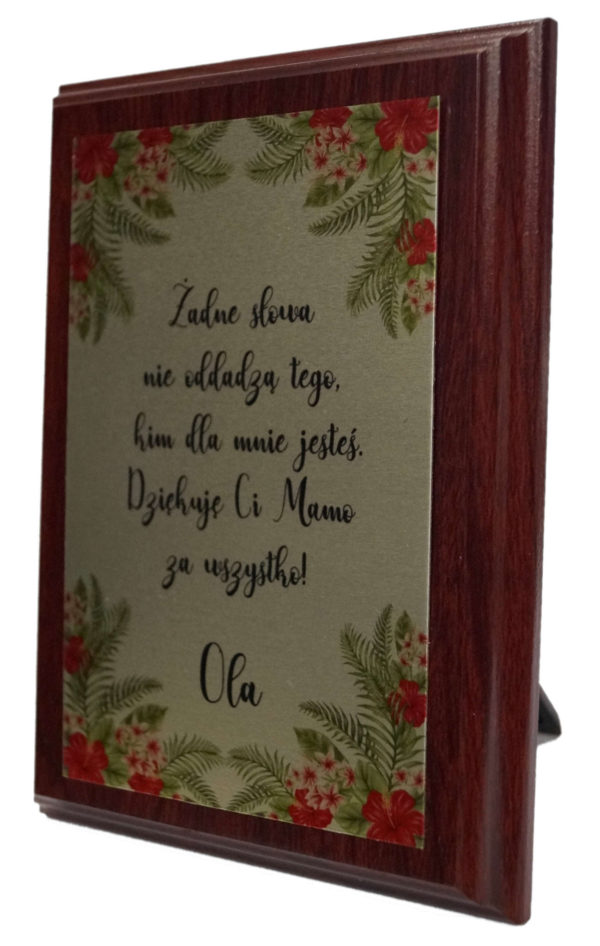 Żadne słowa
nie oddadzą tego,
kim dla mnie jesteś.
Dziękuję Ci Mamo
za wszystko!
Ola